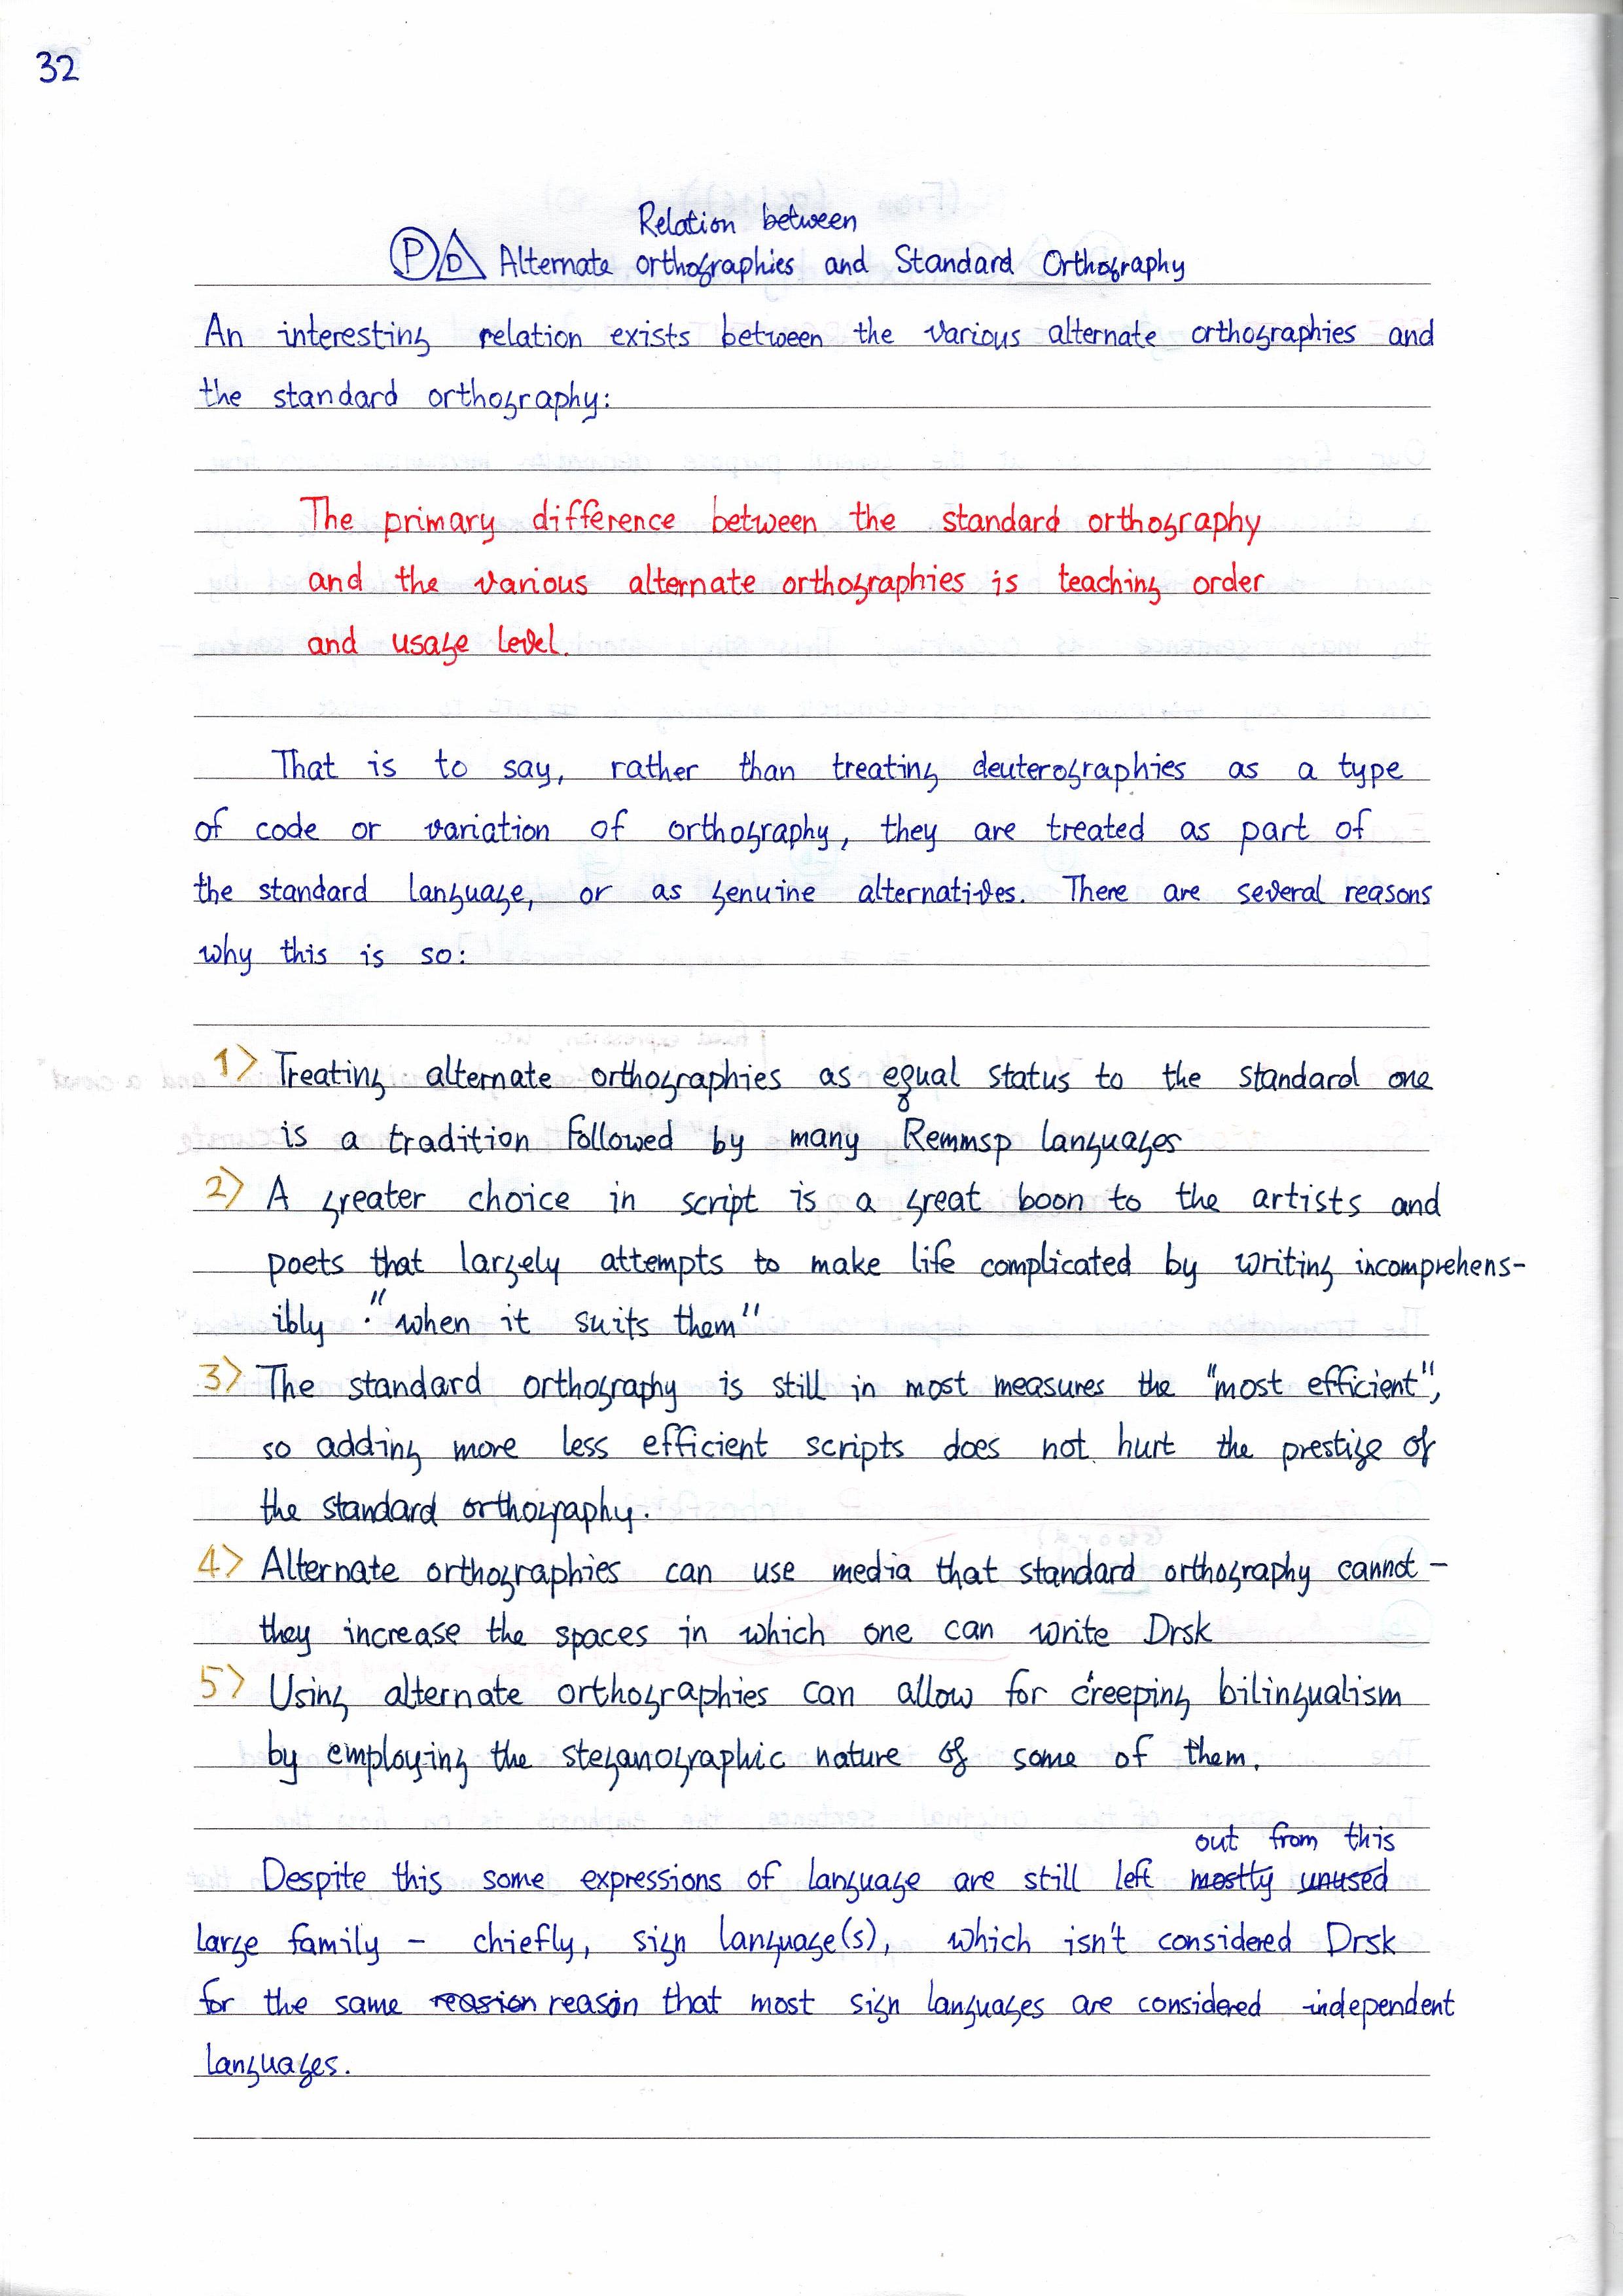 32
Relation between
P D Alternate orthographies and Standard Orthography
An interesting relation exists between the various alternate orthographies and
the standard orthography:
The primary difference between the standard orthography
and the various alternate orthographies is teaching order
and usage level.
That is to say, rather than treating deuterographies as a type
of code or variation of orthography, they are treated as part of
the standard language, or as genuine alternatives. There are several reasons
why this is so:
1> Treating alternate orthographies as equal status to the standard one
is a tradition followed by many Remmsp languages
2> A greater choice in script is a great boon to the artists and
poets that largely attempts to make life complicated by writing incomprehens-
ibly. "when it suits them"
3> The standard orthography is still in most measures the "most efficient",
so adding more less efficient scripts does not hurt the prestige of
the standard orthography.
4> Alternate orthographies can use media that standard orthography cannot -
they increase the spaces in which one can write Drsk
5> Using alternate orthographies can allow for creeping bilingualism
by employing the steganographic nature of some of them.
out from this
Despite this some expressions of language are still left mostly unused
large family - chiefly, sign language(s), which isn't considered Drsk
for the same reasion reason that most sign languages are considered independent
languages.